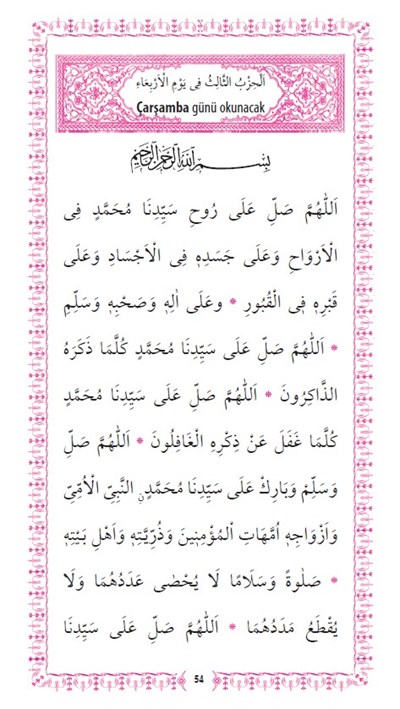 اَلْحِزْبُ الثَّالِثُ فِى يَوْمِ الْاَرْبِعَاءِ
Çarşamba günü okunacak
بِسْمِ اللهِ الرَّحْمٰنِ الرَّحِيمِ
اَللّٰهُمَّ صَلِّ عَلَى رُوحِ سَيِّدِنَا مُحَمَّدٍ فِى
الْاَرْوَاحِ وَعَلَى جَسَدِهٖ فِى الْاَجْسَادِ وَعَلَى
قَبْرِهٖ فِى الْقُبُورِ * وَعَلَى اٰلِهٖ وَصَحْبِهٖ وَسَلِّمْ
* اَللّٰهُمَّ صَلِّ عَلَى سَيِّدِنَا مُحَمَّدٍ كُلَّمَا ذَكَرَهُ
الذَّاكِرُونَ * اَللّٰهُمَّ صَلِّ عَلَى سَيِّدِنَا مُحَمَّدٍ
كُلَّمَا غَفَلَ عَنْ ذِكْرِهِ الْغَافِلُونَ * اَللّٰهُمَّ صَلِّ
وَسَلِّمْ وَبَارِكْ عَلَى سَيِّدِنَا مُحَمَّدٍنِ النَّبِيِّ الْاُمِّيِّ
وَاَزْوَاجِهٖ اُمَّهَاتِ الْمُؤْمِنِينَ وَذُرِّيَّتِهٖ وَاَهْلِ بَيْتِهٖ
* صَلٰوةً وَسَلَامًا لَا يُحْصٰى عَدَدُهُمَا وَلَا
يُقْطَعُ مَدَدُهُمَا * اَللّٰهُمَّ صَلِّ عَلَى سَيِّدِنَا
54